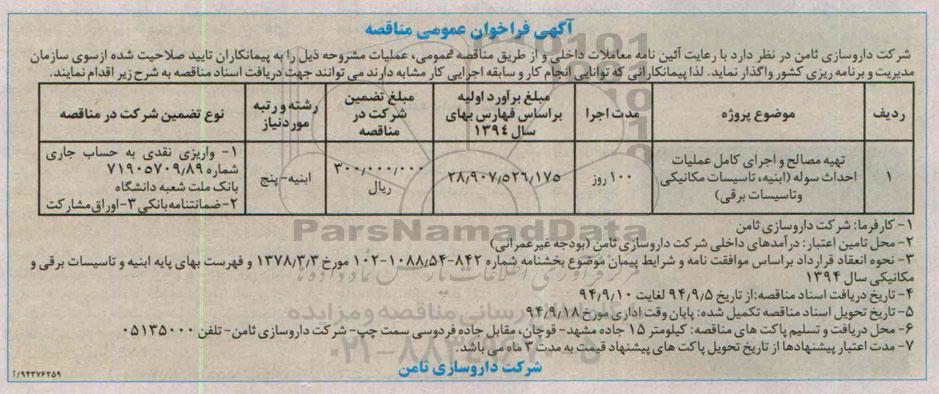 آگهی فراخوان عمومی مناقصه
شرکت داروسازی ثامن در نظر دارد با رعایت آئین نامه معاملات داخلی و از طریق مناقصه عمومی، عملیات مشروحه ذیل را به پیمانکاران تایید صلاحیت شده ازسوی سازمان
مدیریت و برنامه ریزی کشور واگذار نماید. لذا پیمانکارانی که توانایی انجام کار و سابقه اجرایی کار مشابه دارند می توانند جهت دریافت اسناد مناقصه به شرح زیر اقدام نمایند.
ردیف
موضوع پروژه
مدت اجرا
مبلغ برآورد اولیه
براساس فهارس بهای
سال ۱۳۹۴
مبلغ تضمین
شرکت در
مناقصه
رشته و رتبه
موردنیاز
نوع تضمین شرکت در مناقصه
۱
تهیه مصالح و اجرای کامل عملیات
احداث سوله (ابنیه، تاسیسات مکانیکی
وتاسیسات برقی)
۱۰۰ روز
۲۸٫۹۰۷٫۵۲۶٫۱۷۵
۳۰۰٫۰۰۰٫۰۰۰
ریال
ابنیه-پنج
۱- واریزی نقدی به حساب جاری
شماره ۷۱۹۰۵۷۰۹٫۸۹
بانک ملت شعبه دانشگاه
۲-ضمانتنامه بانکی ۳-اوراق مشارکت
۱- کارفرما: شرکت داروسازی ثامن
۲- محل تامین اعتبار: درآمدهای داخلی شرکت داروسازی ثامن (بودجه غیرعمرانی)
۳- نحوه انعقاد قرارداد براساس موافقت نامه و شرایط پیمان موضوع بخشنامه شماره ۸۴۲-۱۰۸۸٫۵۴-۱۰۲ مورخ ۱۳۷۸/۳/۳ و فهرست بهای پایه ابنیه و تاسیسات برقی و
مکانیکی سال ۱۳۹۴
۴- تاریخ دریافت اسناد مناقصه:از تاریخ ۹۴٫۹٫۵ لغایت ۹۴٫۹٫۱۰
۵- تاریخ تحویل اسناد مناقصه تکمیل شده: پایان وقت اداری مورخ ۹۴٫۹٫۱۸
۶- محل دریافت و تسلیم پاکت های مناقصه: کیلومتر ۱۵ جاده مشهد- قوچان، مقابل جاده فردوسی سمت چپ- شرکت داروسازی ثامن- تلفن ۰۵۱۳۵۰۰۰
۷- مدت اعتبار پیشنهادها از تاریخ تحویل پاکت های پیشنهاد قیمت به مدت ۳ ماه می باشد.
شرکت داروسازی ثامن
۹۴۳۷۶۲۵۹/آ
ParsNamadData